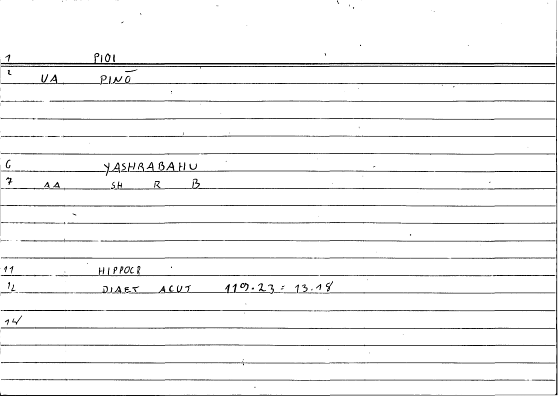 1 PIOI
2 UA PINŌ
6 YASHRABAHU
7 AA SH R B
11 HIPPOCR
12 DIAET ACUT 119.23 = 13.18
14